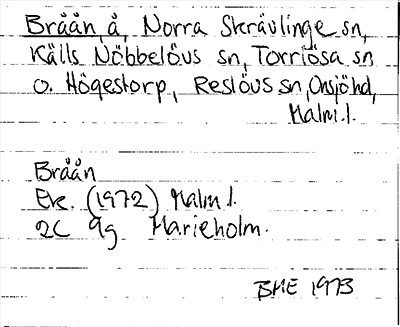 Bråån å, Norra Skrävlinge sn,
Källs Nöbbelövs sn, Torrlösa sn
o. Högestorp, Reslövs sn, Onsjö hd,
Malm. l.
Bråån
Ek. (1972) Malm l.
2C 9g Marieholm.
BME 1973